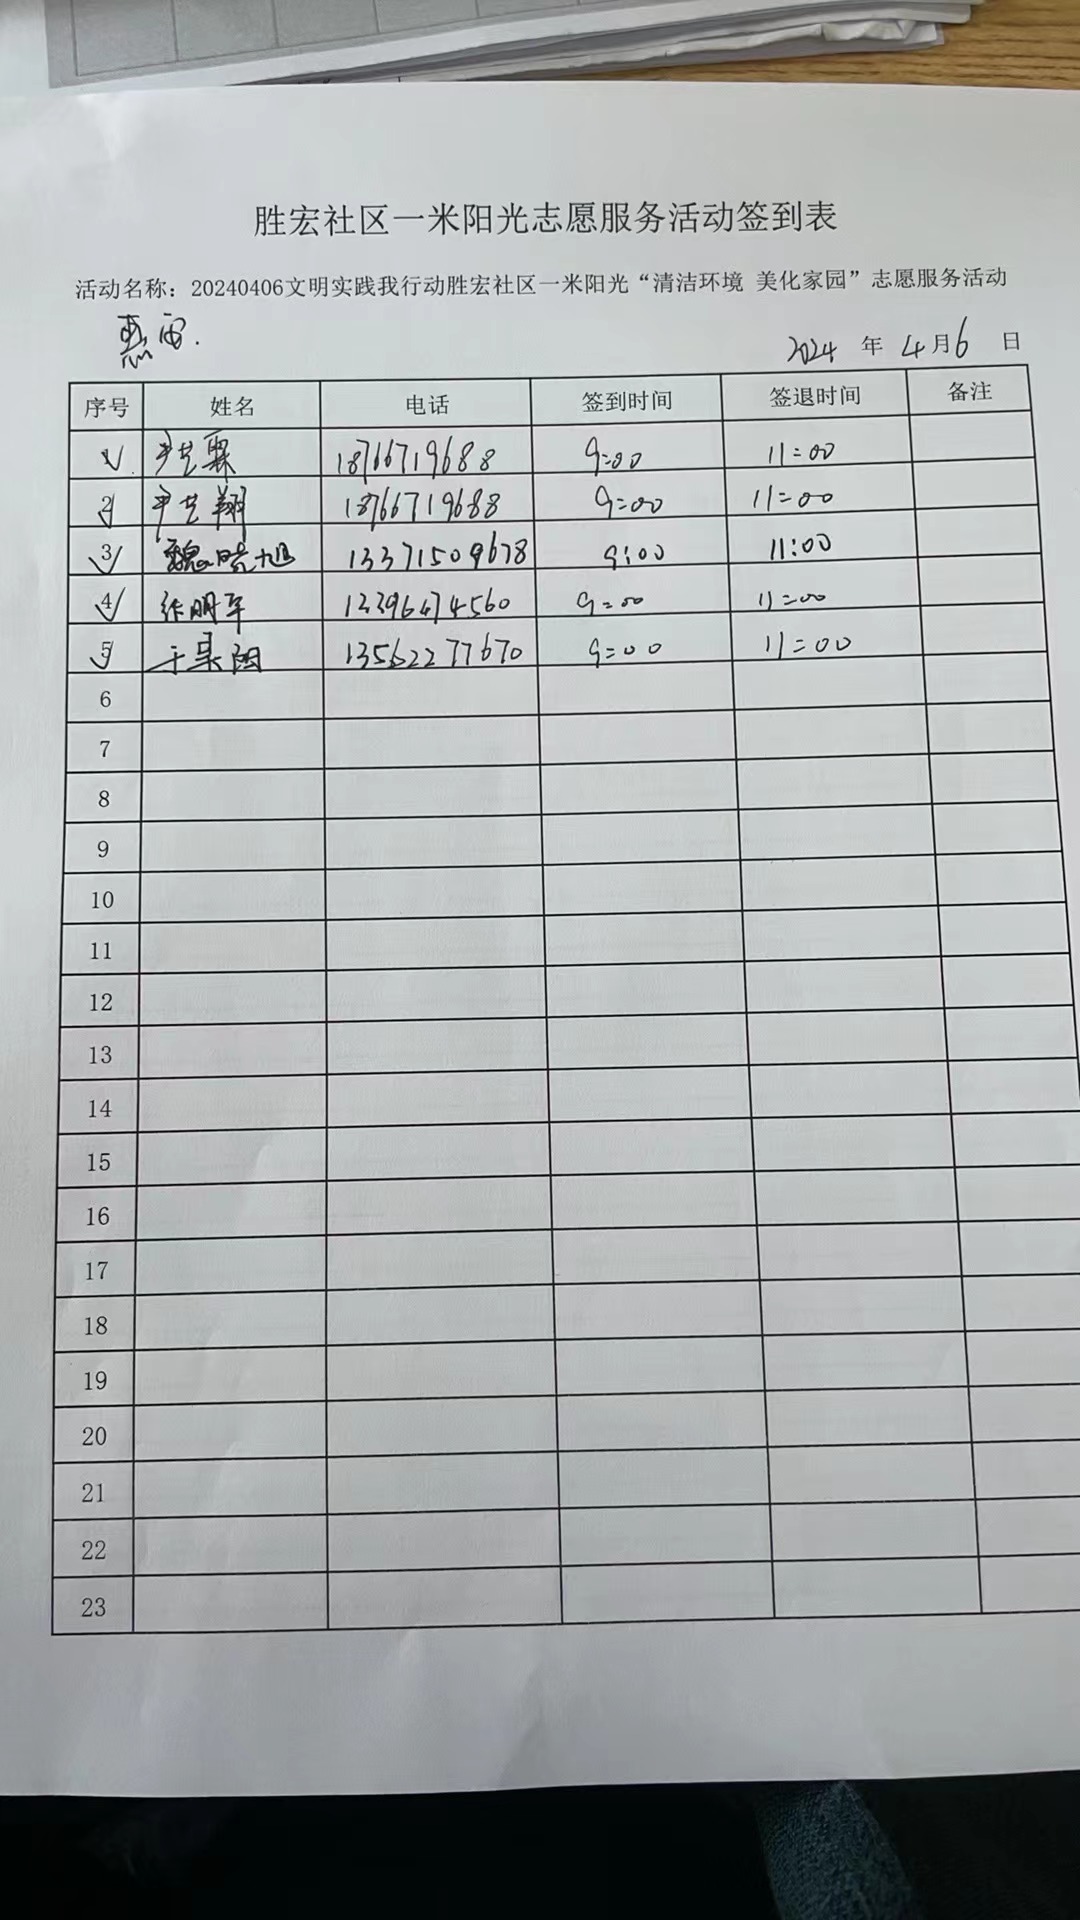 胜宏社区一米阳光志愿服务活动签到表
活动名称：20240406文明实践我行动胜宏社区一米阳光“清洁环境 美化家园”志愿服务活动
2024 年 4月6 日
序号 姓名 电话 签到时间 签退时间 备注
1 尹艺霖 18766719688 9:00 11:00
2 尹艺翔 18766719688 9:00 11:00
3 魏晧旭 13371509678 9:00 11:00
4 张明军 13396474560 9:00 11:00
5 于昊阳 13562277670 9:00 11:00
6
7
8
9
10
11
12
13
14
15
16
17
18
19
20
21
22
23